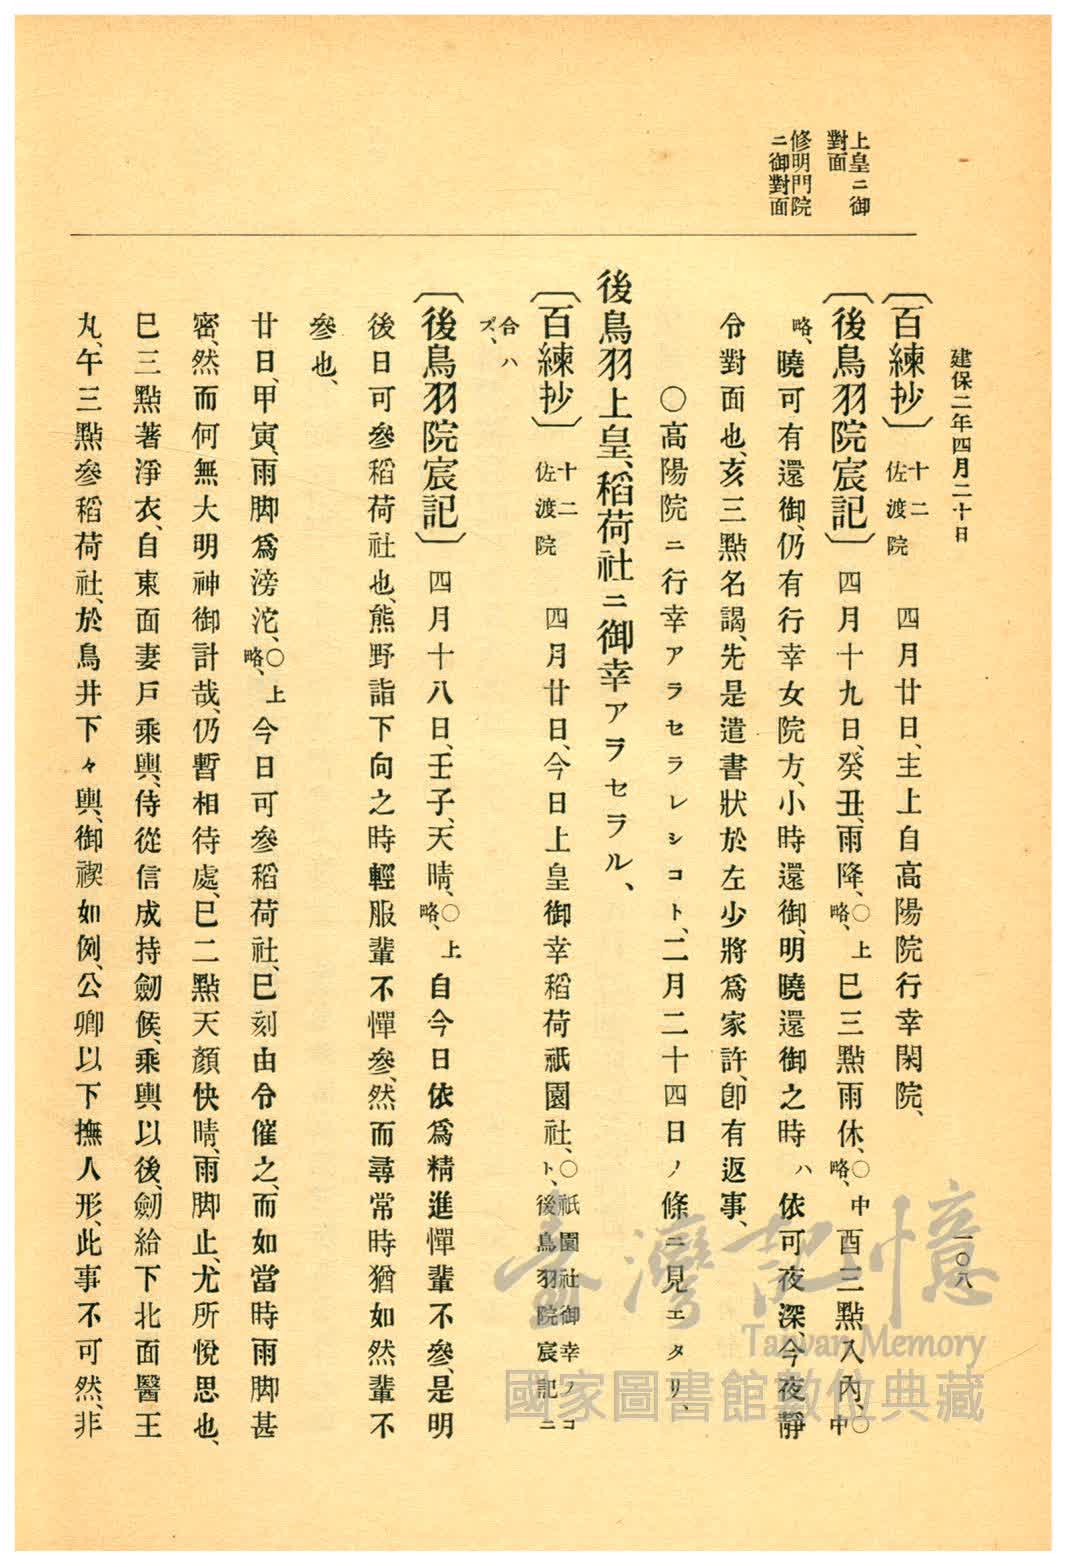 建保二年四月二十日
一〇八
上皇ニ御
對面
修明門院
ニ御對面
〔百練抄〕十二佐渡院 四月廿日、主上自高陽院行幸閑院、
〔後鳥羽院宸記〕四月十九日、癸丑、雨降、〇上略、巳三點雨休、〇中略、酉三點入內、〇中
略、曉可有還御、仍有行幸女院方、小時還御、明曉還御之時ハ依可夜深、今夜靜
令對面也、亥三點名謁、先是遣書狀於左少將爲家許、卽有返事、
〇高陽院ニ行幸アラセラレシコト、二月二十四日ノ條ニ見エタリ、
後鳥羽上皇、稻荷社ニ御幸アラセラル、
〔百練抄〕十二佐渡院 四月廿日、今日上皇御幸稻荷祇園社、〇祇園社御幸ノコト、後鳥羽院宸記ニ
合ハズ、
〔後鳥羽院宸記〕四月十八日、壬子、天晴、〇上略、自今日依爲精進憚輩不參、是明
後日可參稻荷社也、熊野詣下向之時輕服輩不憚參、然而尋常時猶如然輩不
參也、
廿日、甲寅、雨脚爲滂沱、〇上略、今日可參稻荷社、巳刻由令催之、而如當時雨脚甚
密、然而何無大明神御計哉、仍暫相待處、巳二點天顏快晴、雨脚止、尤所悅思也、
巳三點著淨衣、自東面妻戶乘輿、侍從信成持劒候、乘輿以後、劒給下北面醫王
丸、午三點參稻荷社、於鳥井下々輿、御禊如例、公卿以下撫人形、此事不可然、非
臺灣記憶
Taiwan Memory
國家圖書館數位典藏